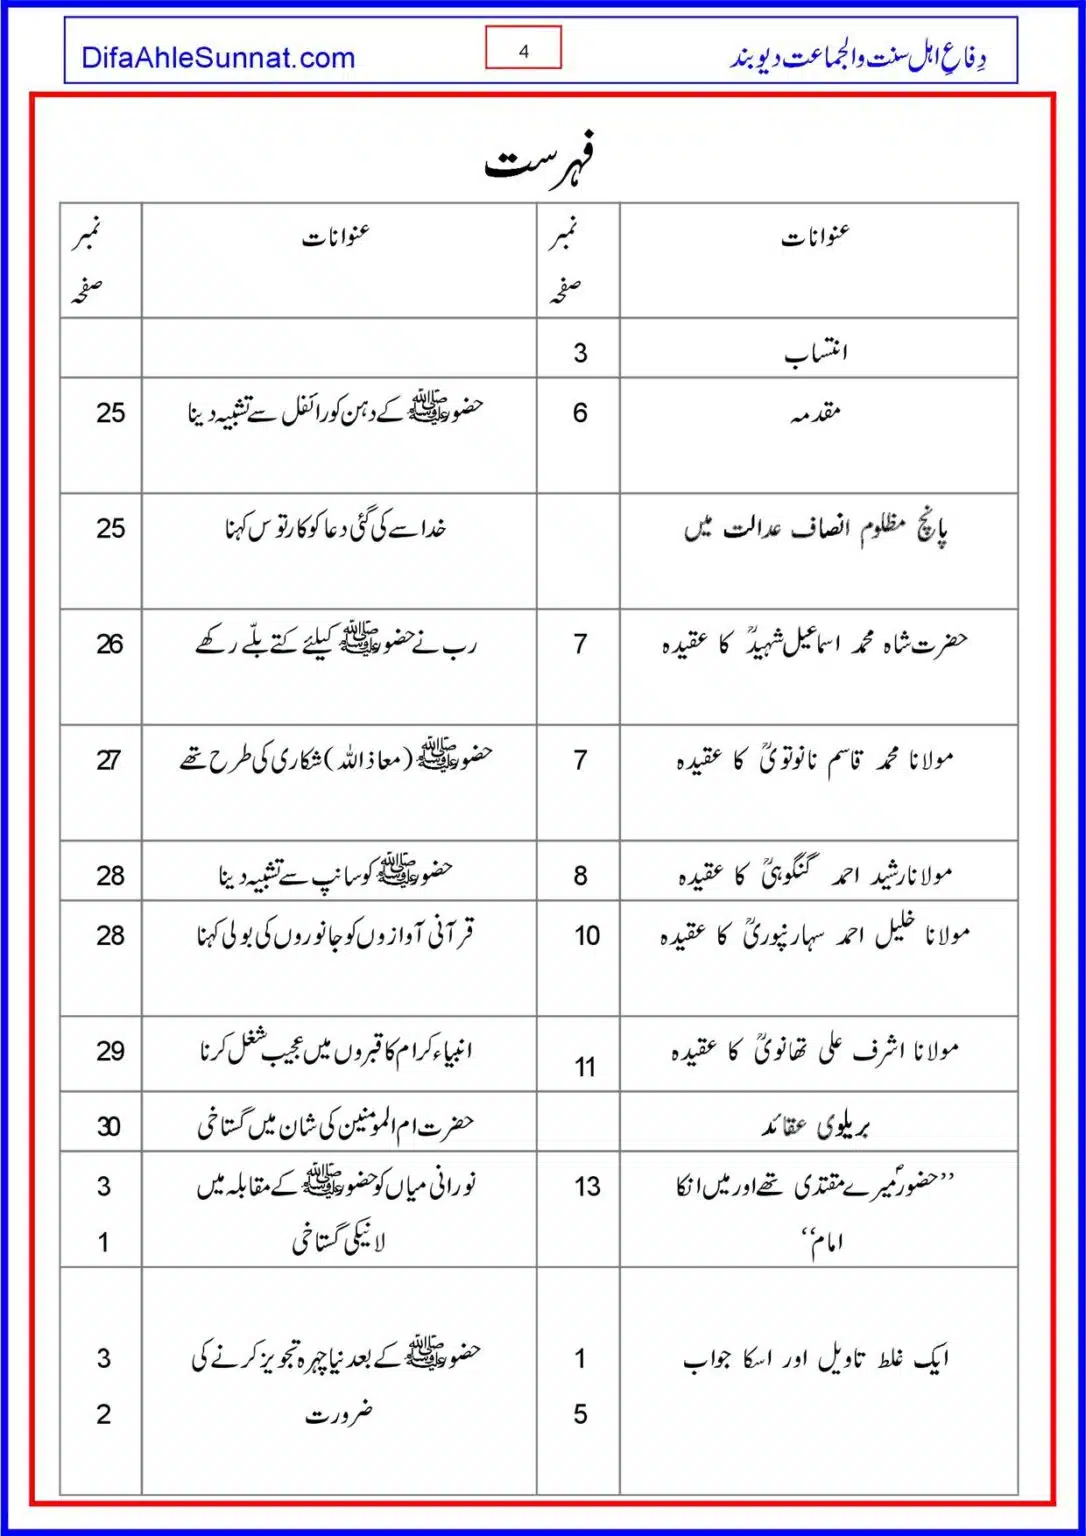 دِفاعِ اہل سنت والجماعت دیوبند
4
DifaAhleSunnat.com
فہرست
عنوانات نمبر صفحہ عنوانات نمبر صفحہ
انتساب 3
مقدمہ 6 حضورﷺ کے دہن کو رائفل سے تشبیہ دینا 25
پانچ مظلوم انصاف عدالت میں خدا سے کی گئی دعا کو کارتوس کہنا 25
حضرت شاہ محمد اسماعیل شہیدؒ کا عقیدہ 7 رب نے حضورﷺ کیلئے کتے بلّے رکھے 26
مولانا محمد قاسم نانوتویؒ کا عقیدہ 7 حضورﷺ (معاذ اللہ) شکاری کی طرح تھے 27
مولانا رشید احمد گنگوہیؒ کا عقیدہ 8 حضورﷺ کو سانپ سے تشبیہ دینا 28
مولانا خلیل احمد سہارنپوریؒ کا عقیدہ 10 قرآنی آوازوں کو جانوروں کی بولی کہنا 28
مولانا اشرف علی تھانویؒ کا عقیدہ 11 انبیاء کرام کا قبروں میں عجیب شغل کرنا 29
بریلوی عقائد حضرت ام المومنین کی شان میں گستاخی 30
’’حضورؐ میرے مقتدی تھے اور میں انکا 13 نورانی میاں کو حضورﷺ کے مقابلہ میں 3
امام‘‘ لانیکی گستاخی 1
ایک غلط تاویل اور اسکا جواب 1 حضورﷺ کے بعد نیا چہرہ تجویز کرنے کی 3
5 ضرورت 2